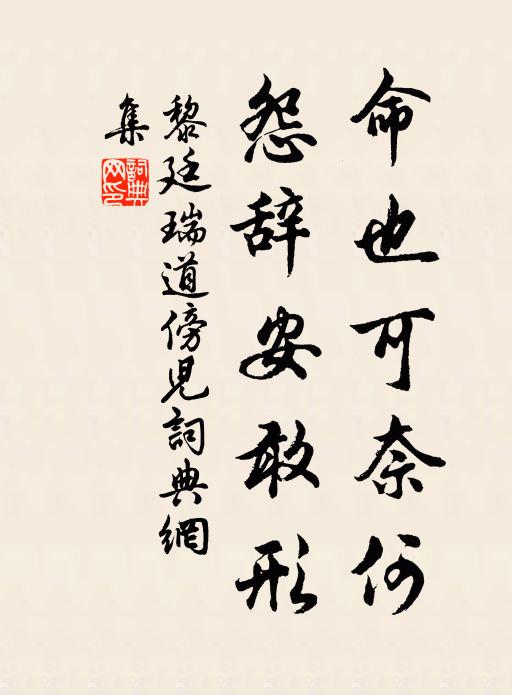 命也可奈何
怨辞安敢形
黎廷瑞道傍児詞典網
集
詞典
网印